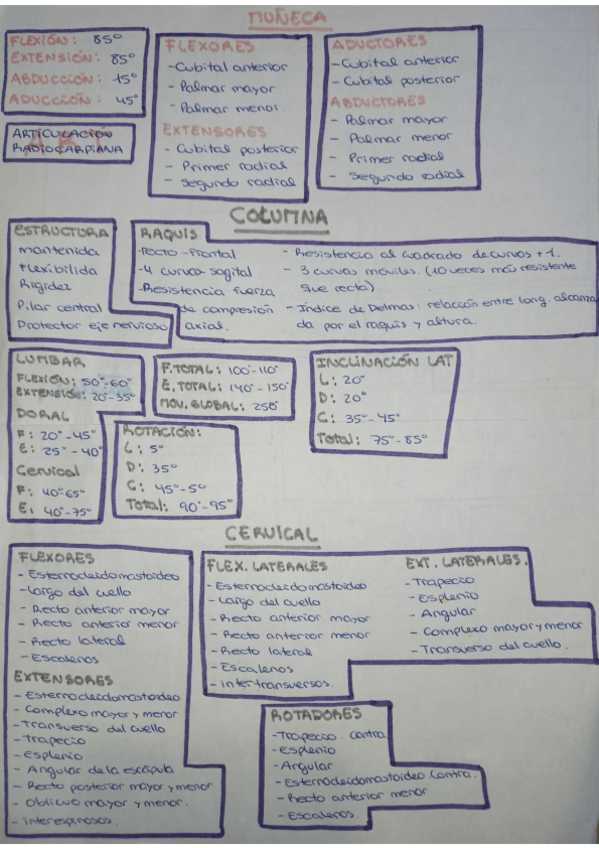 MUÑECA
FLEXIÓN: 85º
EXTENSIÓN: 85º
ABDUCCIÓN: 15º
ADUCCIÓN: 45º
ARTICULACIÓN
RADIOCARPIANA
FLEXORES
-Cubital anterior
- Palmar mayor
- Palmar menor.
EXTENSORES
- Cubital posterior
- Primer radial
- Segundo radial
ADUCTORES
- Cubital anterior
- Cubital posterior
ABDUCTORES
- Palmar mayor
- Palmar menor
- Primer radial
- Segundo radial
COLUMNA
ESTRUCTURA
mantenida
flexibilida
Rigidez
Pilar central
Protector eje nervioso
RAQUIS
-Recto -frontal
-4 curvas sagital
-Resistencia fuerza
de compresión
axial.
- Resistencia al cuadrado de curvas +1.
- 3 curvas móviles. (10 veces más resistente
que recta)
- Índice de Delmas: relacción entre long. alcanza
da por el raquis y altura.
LUMBAR
FLEXIÓN: 50º-60º
EXTENSIÓN: 20º-35º
DORAL
F: 20º-45º
E: 25º-40º
Cervical
F: 40º65º
E: 40º-75º
F.TOTAL: 100º-110º
E.TOTAL: 140º-150º
MOV. GLOBAL: 250º
ROTACIÓN:
L: 5º
D: 35º
C: 45º-5º
Total: 90º-95º
INCLINACIÓN LAT
L: 20º
D: 20º
C: 35º-45º
Total: 75º-85º
CERVICAL
FLEXORES
- Esternocleidomastoideo
-Largo del cuello
- Recto anterior mayor
- Recto anterior menor
- Recto lateral
-Escalenos
EXTENSORES
- Esternocleidomastoideo
- Complexo mayor y menor
-Transverso del cuello
-Trapecio
-Esplenio
- Angular de la escápula
- Recto posterior mayor y menor
- Oblicuo mayor y menor.
- interespinosos.
FLEX. LATERALES
- Esternocleidomastoideo
- Largo del cuello
- Recto anterior mayor
- Recto anterior menor
- Recto lateral
- Escalenos
- intertransversos.
EXT. LATERALES.
- Trapecio
- Esplenio
- Angular
- Complexo mayor y menor
- Transverso del cuello.
ROTADORES
-Trapecio. contra
-Esplenio
-Angular
- Esternocleidomastoideo Contra.
- Recto anterior menor
- Escalenos.